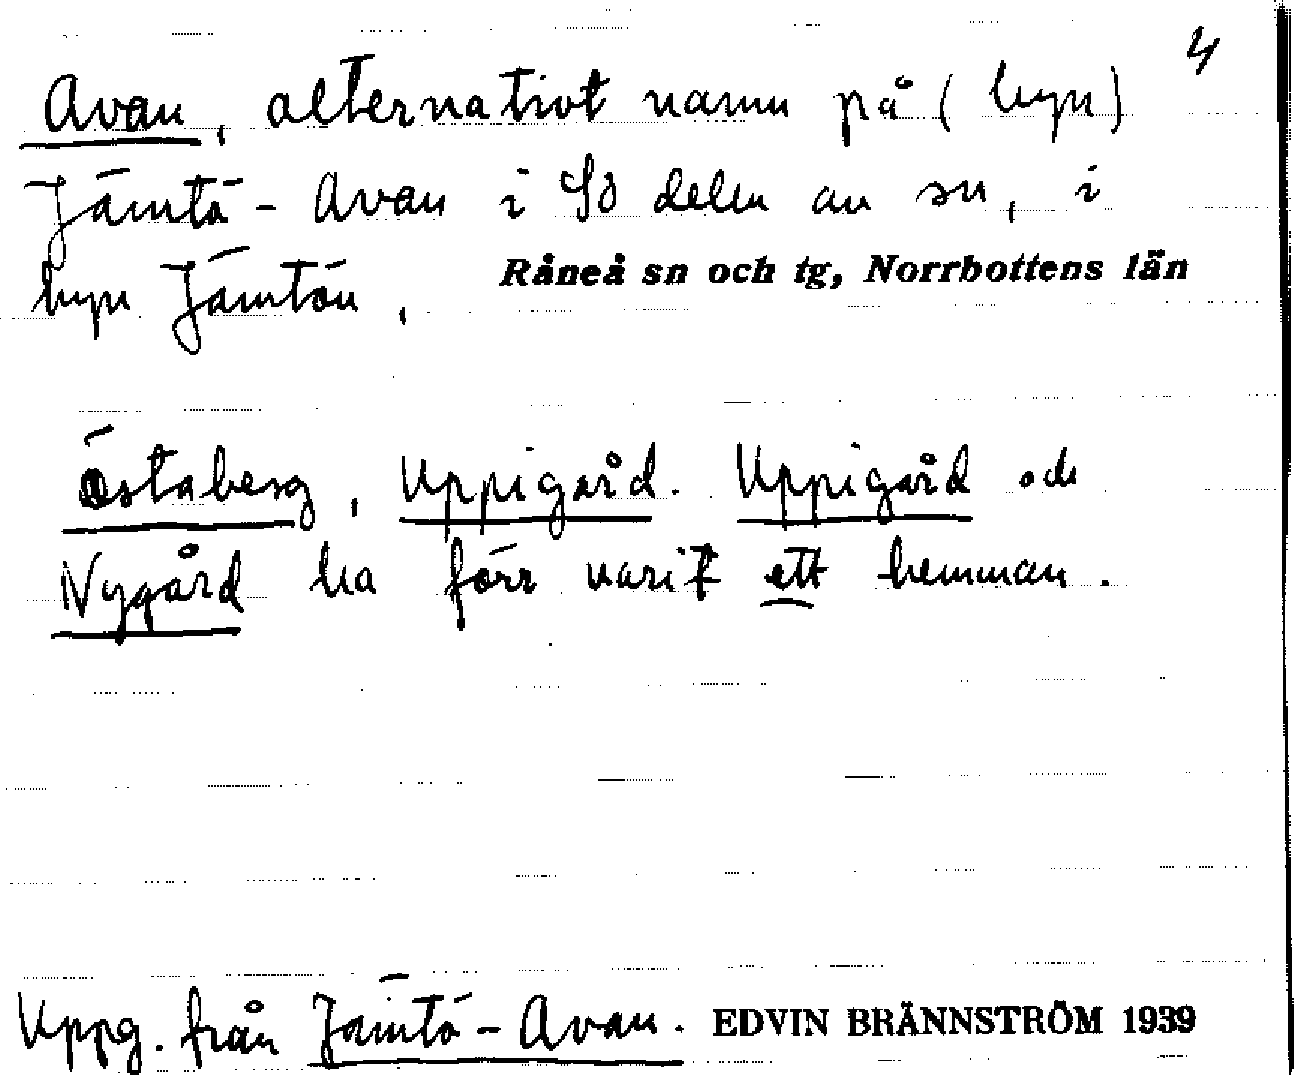 4
Avan, alternativt namn på (byn)
Jämtö-Avan i Sö delen av sn, i
byn Jämtön,
Råneå sn och tg, Norrbottens län
Östaberg, Uppigård. Uppigård och
Nygård ha förr varit ett hemman.
Uppg. från Jämtö-Avan. EDVIN BRÄNNSTRÖM 1939